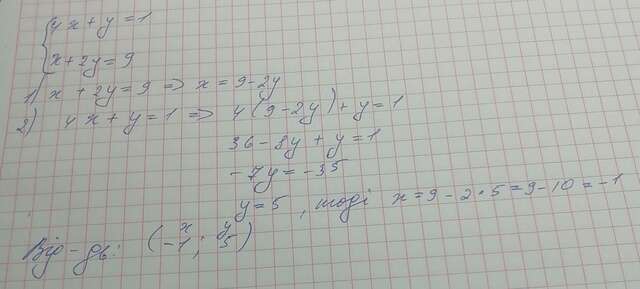 { 4x + y = 1
x + 2y = 9
1) x + 2y = 9 => x = 9 - 2y
2) 4x + y = 1 => 4(9 - 2y) + y = 1
36 - 8y + y = 1
-7y = -35
y = 5, тоді x = 9 - 2 · 5 = 9 - 10 = -1
x y
Від-дь: (-1; 5)